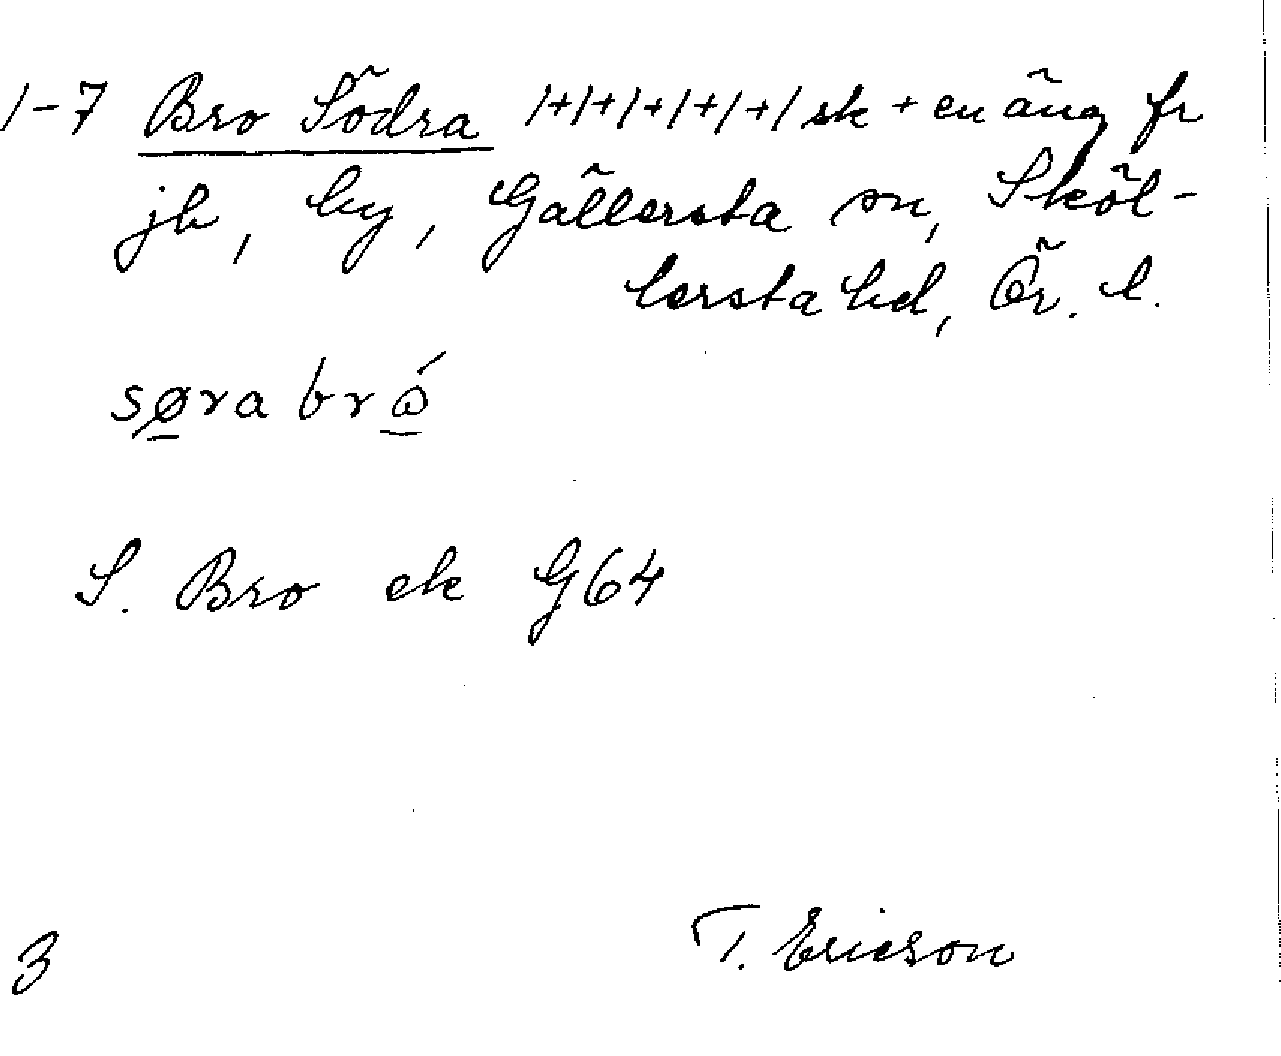 1-7 Bro Södra 1+1+1+1+1+1 sk + en äng fr
jb, by, Gällersta sn, Sköl-
lersta hd, Ör. l.
søra brɷ́
S. Bro ek G64
3 T. Ericson